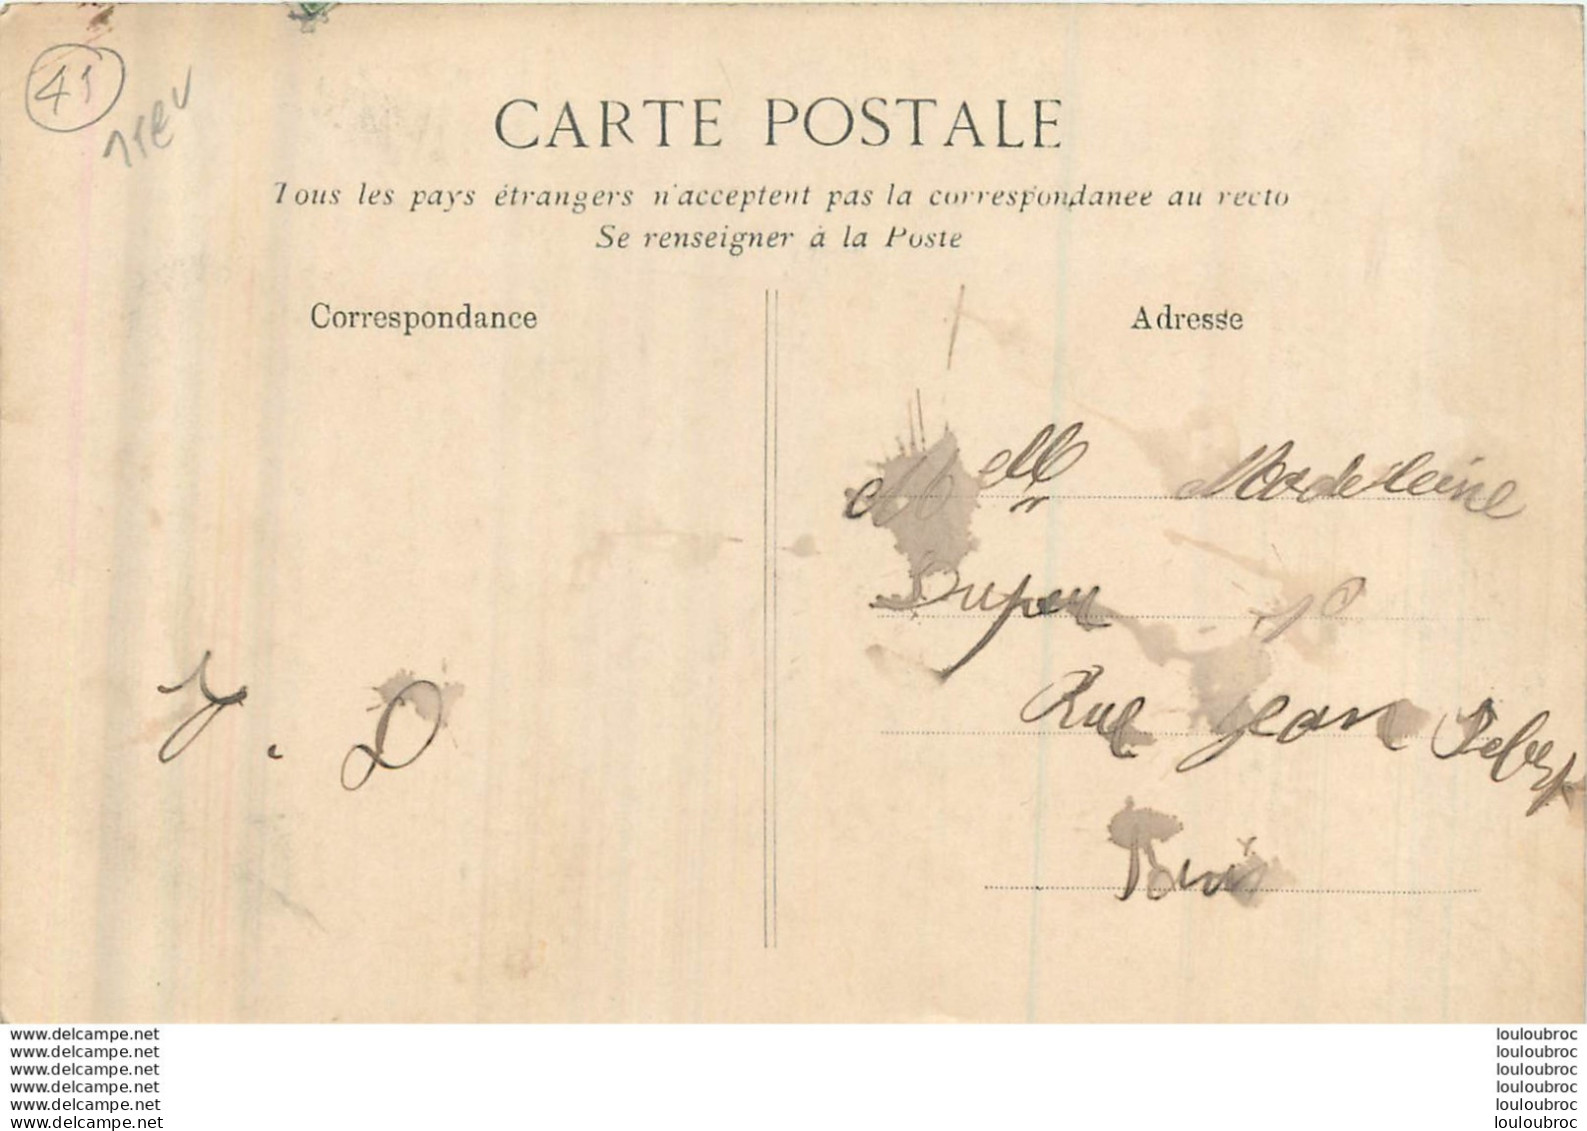 41
CARTE POSTALE
Tous les pays étrangers n'acceptent pas la correspondance au recto
Se renseigner à la Poste
Correspondance
Adresse
Melle Madeleine
Rue Jean
Paris
www.delcampe.net
www.delcampe.net
www.delcampe.net
www.delcampe.net
www.delcampe.net
www.delcampe.net
louloubroc
louloubroc
louloubroc
louloubroc
louloubroc
louloubroc